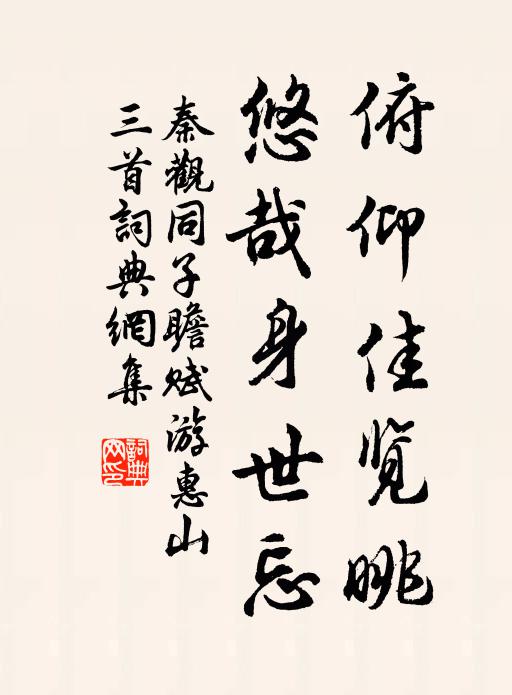 俯仰佳览眺
悠哉身世忘
秦觀同子瞻赋游惠山
三首詞典網集
詞典網印